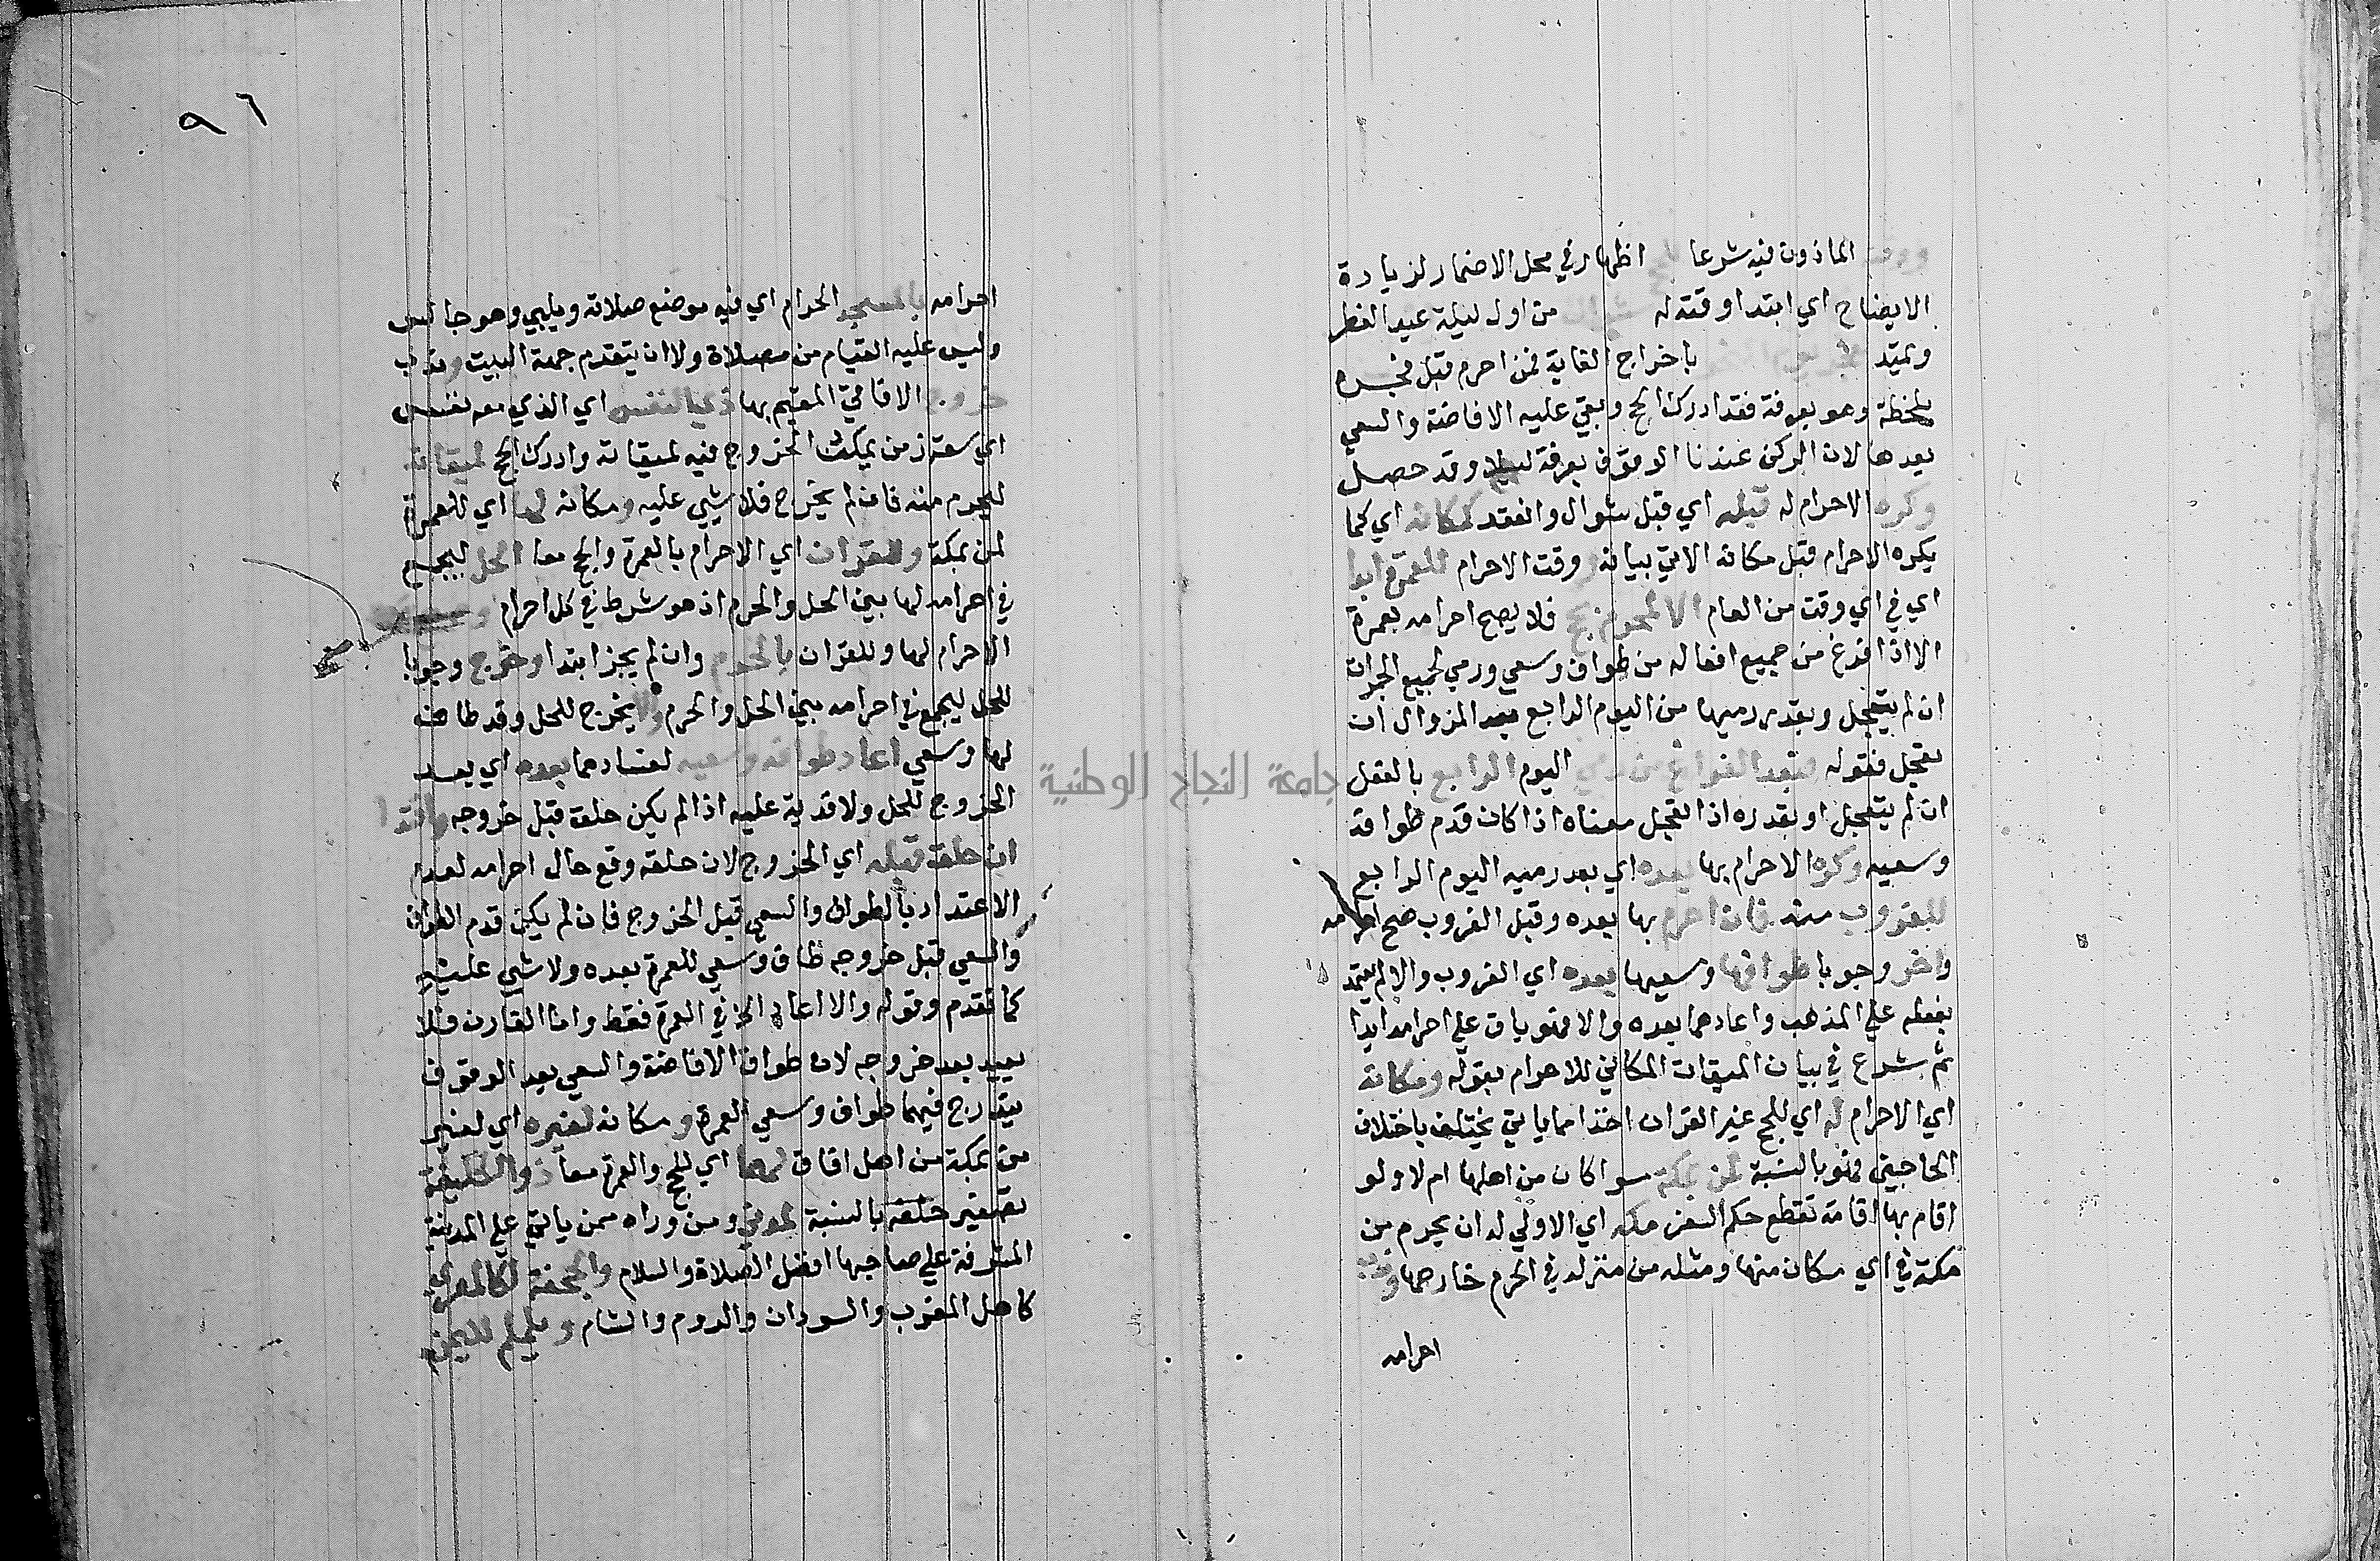 ووقت الماذون فيه شرعا للحج اظهار في محل الاضمار لزيادة
الايضاح اي ابتدا وقته له شوال من اول ليلة عيد الفطر
ويمتد باخراج الغاية فمن احرم قبل فجره
بلحظة وهو بعرفة فقد ادرك الحج وبقي عليه الافاضة والسعي
بعدها لان الركن عندنا الوقوف بعرفة ليلا وقد حصل
وكره الاحرام له قبله اي قبل شوال وانعقد كمكانه اي كما
يكره الاحرام قبل مكانه الاتي بيانه ووقت الاحرام للعمرة ابدا
اي في اي وقت من العام الا لمحرم بحج فلا يصح احرامه بعمرة
الا اذا فرغ من جميع افعاله من طواف وسعي ورمي لجميع الجمرات
ان لم يتعجل وبقدر رميها من اليوم الرابع بعد الزوال ان
تعجل فقوله فبعد الفراغ من رمي اليوم الرابع بالفعل
ان لم يتعجل او بقدره اذا تعجل معناه اذا كان قدم طوافه
وسعيه وكره الاحرام بها بعده اي بعد رميه اليوم الرابع
للغروب منه فان احرم بها بعده وقبل الغروب صح احرامه
واخر وجوبا طوافها وسعيها بعده اي الغروب والا لم يعتد
بفعله علي المذهب واعادهما بعده والا فهو باق علي احرامه ابدا
ثم شرع في بيان الميقات المكاني للاحرام بقوله ومكانه
اي الاحرام له اي للحج غير القران اخذا مما ياتي يختلف باختلاف
الحاجين فهو بالنسبة لمن بمكة سوا كان من اهلها ام لا ولو
اقام بها اقامة تقطع حكم السفر مكة اي الاولي له ان يحرم من
مكة في اي مكان منها ومثله من منزله في الحرم خارجها وندب
احرامه
٩٦
احرامه بالمسجد الحرام اي فيه موضع صلاته ويلبي وهو جالس
وليس عليه القيام من مصلاه ولا ان يتقدم جهة البيت وندب
خروج الافاقي المقيم بها ذي النفس اي الذي معه نفس
اي سعة زمن يمكنه الخروج فيه لميقاته وادرك الحج لميقاته
ليحرم منه فان لم يخرج فلا شي عليه ومكانه لها اي للعمرة
لمن بمكة وللقران اي الاحرام بالعمرة والحج معا الحل ليجمع
في احرامه لها بين الحل والحرم اذ هو شرط في كل احرام وصح
الاحرام لها وللقران بالحرم وان لم يجز ابتدا وخرج وجوبا
للحل ليجمع في احرامه بين الحل والحرم والا يخرج للحل وقد طاف
لها وسعي اعاد طوافه وسعيه لفسادهما بعده اي بعد
الخروج للحل ولا فدية عليه اذا لم يكن حلق قبل خروجه وافتدا
ان حلق قبله اي الخروج لان حلقه وقع حال احرامه لعدم
الاعتداد بالطواف والسعي قبل الخروج فان لم يكن قدم الطواف
والسعي قبل خروجه طاف وسعي للعمرة بعده ولا شي عليه
كما تقدم وقوله والا اعاد الخ في العمرة فقط واما القارن فلا
يعيد بعد خروجه لان طواف الافاضة والسعي بعد الوقوف
يندرج فيهما طواف وسعي العمرة ومكانه لغيره اي لغير
من بمكة من اهل افاق لهما اي للحج والعمرة معا ذو الحليفة
تصغير حلفة بالنسبة لمدني ومن وراه ممن ياتي علي المدينة
المشرفة علي صاحبها افضل الصلاة والسلام والجحفة لكالمصري
كاهل المغرب والسودان والروم والشام ويلملم لليمن
جامعة النجاح الوطنية